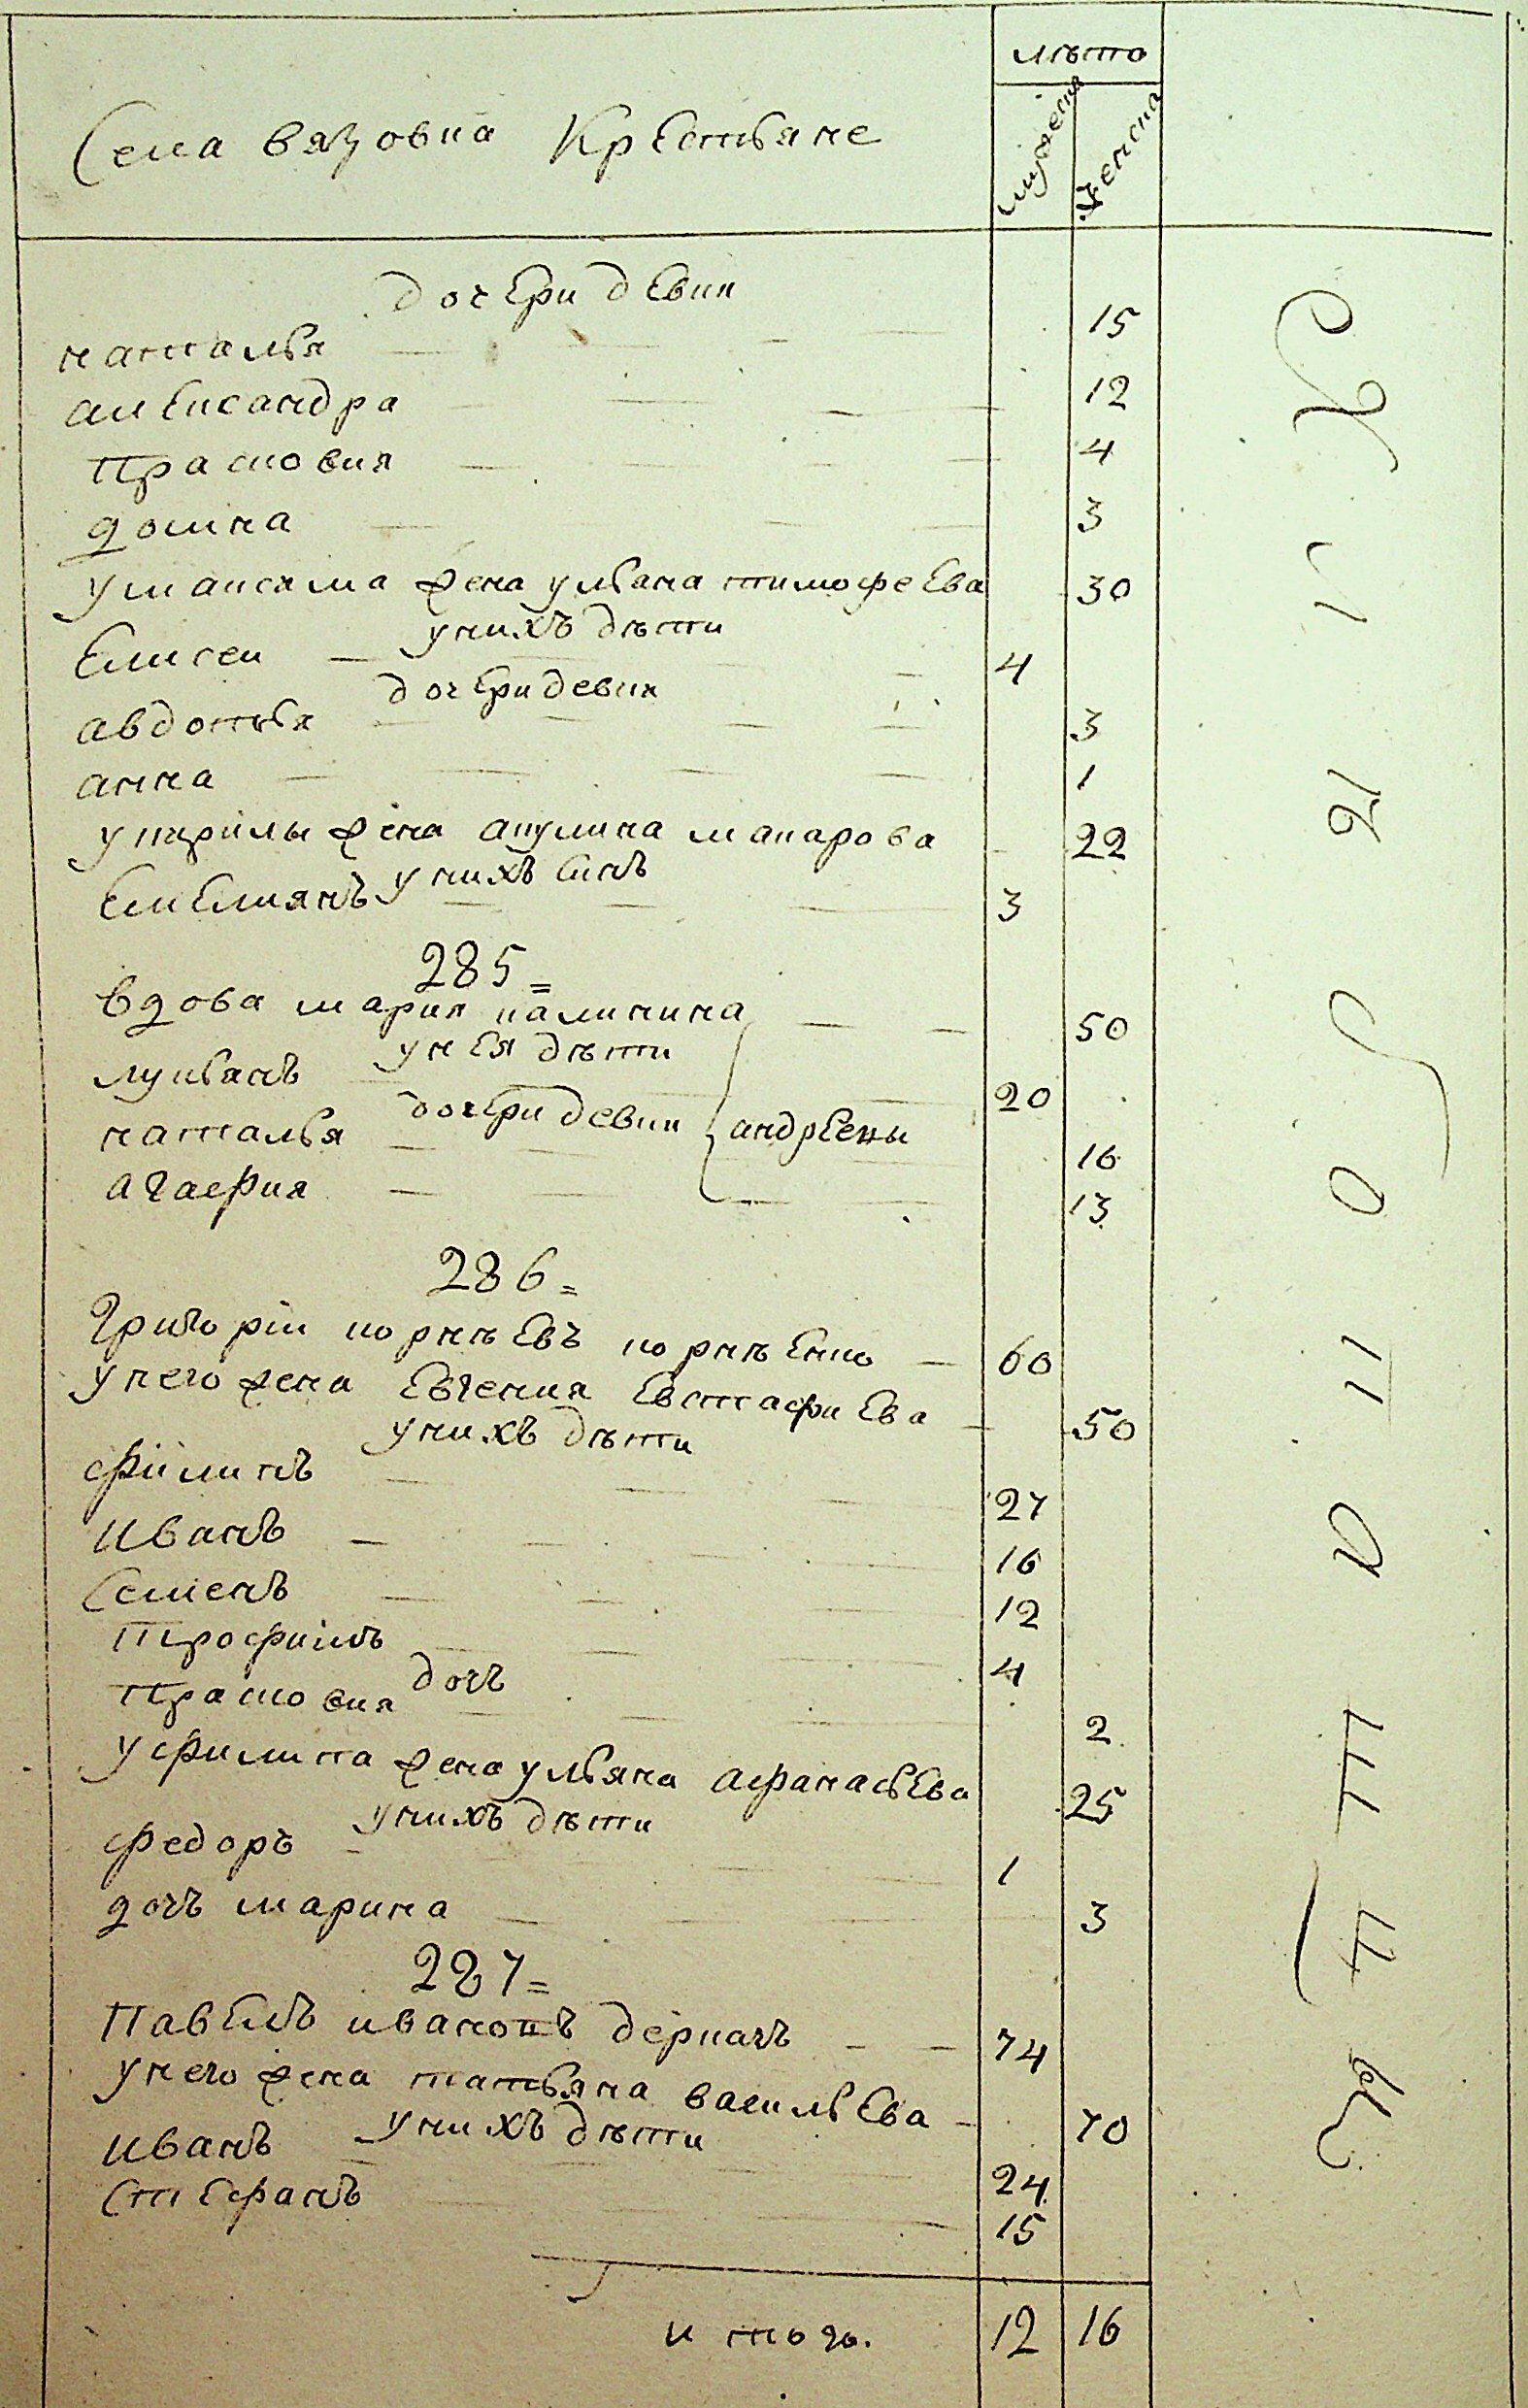 лѣта
Села Вязовка Крестьяне
мужеска
женска
дочери девки
наталья 15
александра 12
Прасковия 4
домна 3
у максима жена ульяна тимофеева 30
у нихъ дѣти
Елисеи 4
дочери девки
авдотья 3
анна 1
у кирилы жена акулина макарова 22
у нихъ синъ
Емелиянъ 3
285
вдова мария калинина 50
у нея дѣти
лукьянъ 20
дочери девки
андреены
наталья 16
агафия 13
286
Григорій корнѣевъ корнѣенко 60
у него жена Евгения Евстафиева 50
у нихъ дѣти
филипъ 27
иванъ 16
Семенъ 12
Трофимъ 4
дочъ
Прасковия 2
у филипа жена ульяна афанасьева 25
у нихъ дѣти
федоръ 1
дочъ марина 3
287
Павелъ ивановъ деркачъ 74
у него жена татьяна васильева 70
у нихъ дѣти
иванъ 24
Стефанъ 15
итого 12 16